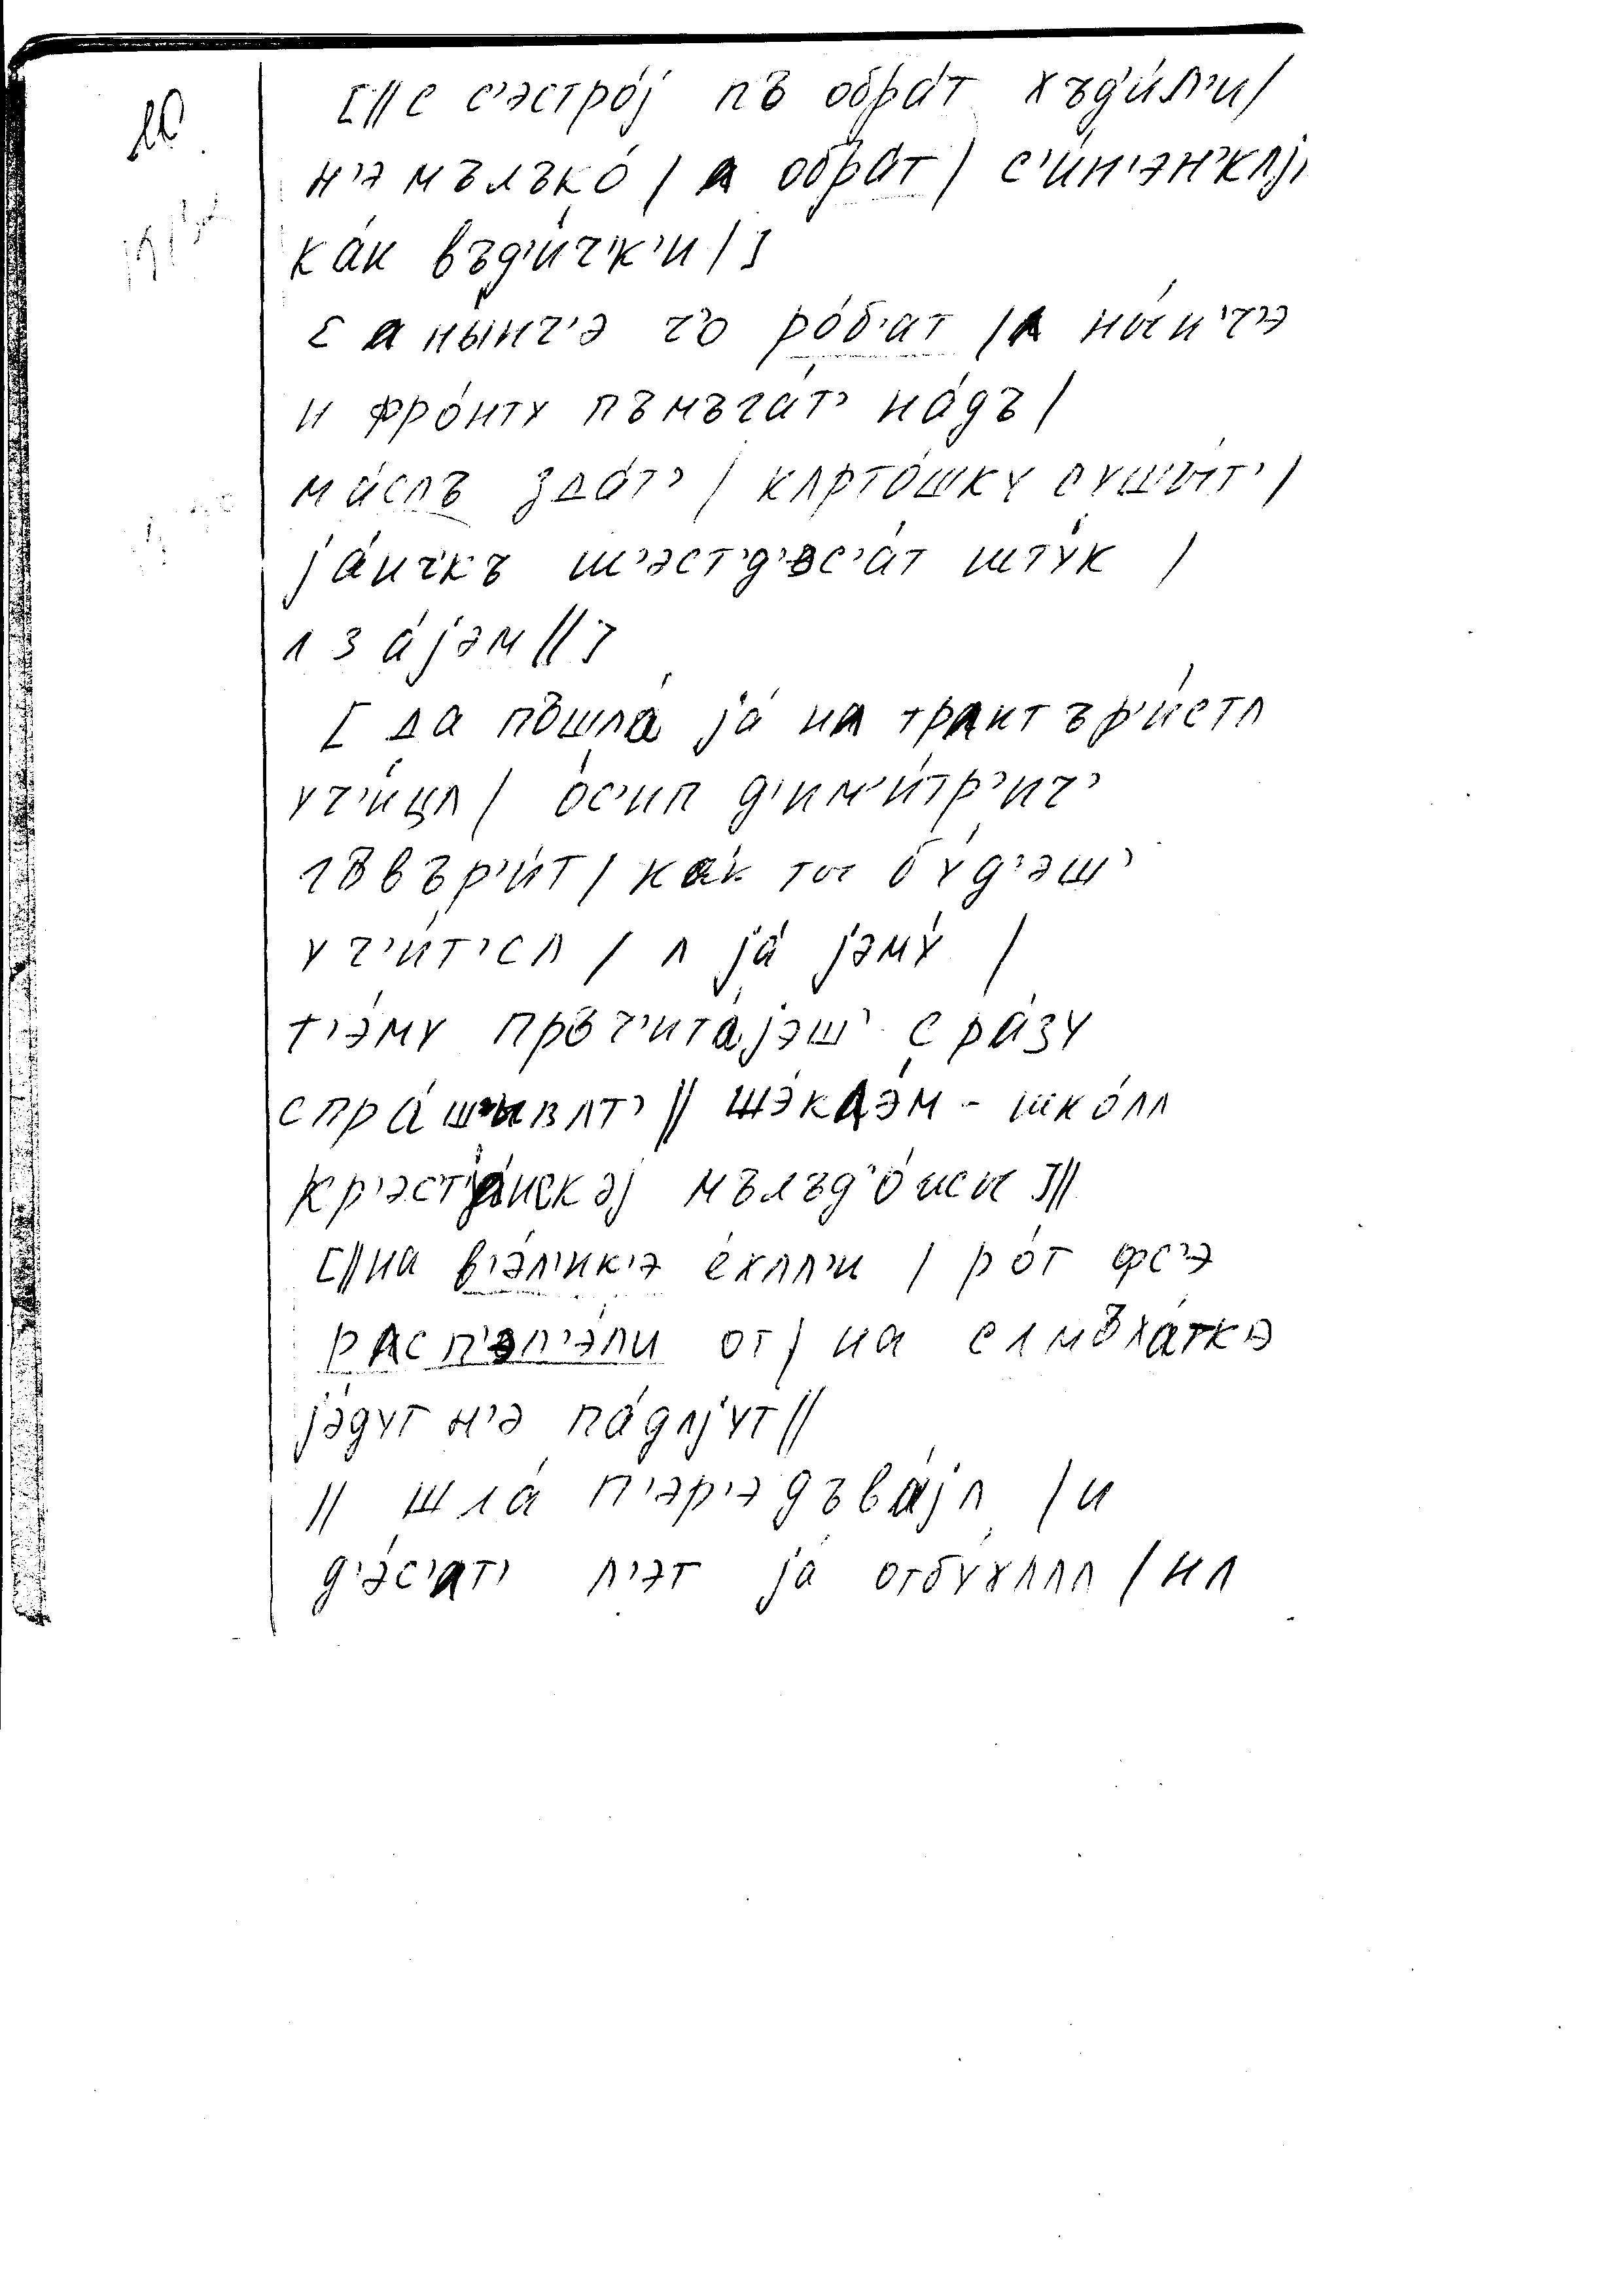 10.
[// с с'эстро́j пъ обра́т хъд'и́л'и /
н'э мълъко́ / ʌ обра́т / с'и́н'эн'кʌj,
ка́к въд'и́ч'к'и / ]
[ а ны́нч'э ч'о ро́б'ат / ʌ ны́н'ч'э
и фро́нту пъмъга́т' на́дъ /
ма́слъ здат' / кʌрто́шку сушы́т' /
jа́ичкъ ш'эст'д'эс'а́т шту́к /
ʌ за́jэм // ]
[ да пъшла́ jа́ на трʌктъри́стʌ
уч'и́цʌ / о́с'ип д'им'и́тр'ич'
гъвър'и́т / ка́к ты бу́д'эш'
уч'и́т'сʌ / ʌ jа́ jэму́ /
т'э́му пръч'ита́jэш' сра́зу
спра́шывʌт' // шэ́кʌэ́м - шко́лʌ
кр'эст'jа́нскэj мълъд'о́жы ]//
[// на в'э́л'ик'э éхʌл'и / ро́т фс'э
рʌсп'эл'э́ли от / на сʌмъха́ткэ
jэ́дут н'э па́дʌjут //
// шла́ п'эр'эдъва́jʌ / и
д'э́с'ат' л'эт jа́ отбу́хʌлʌ / нʌ